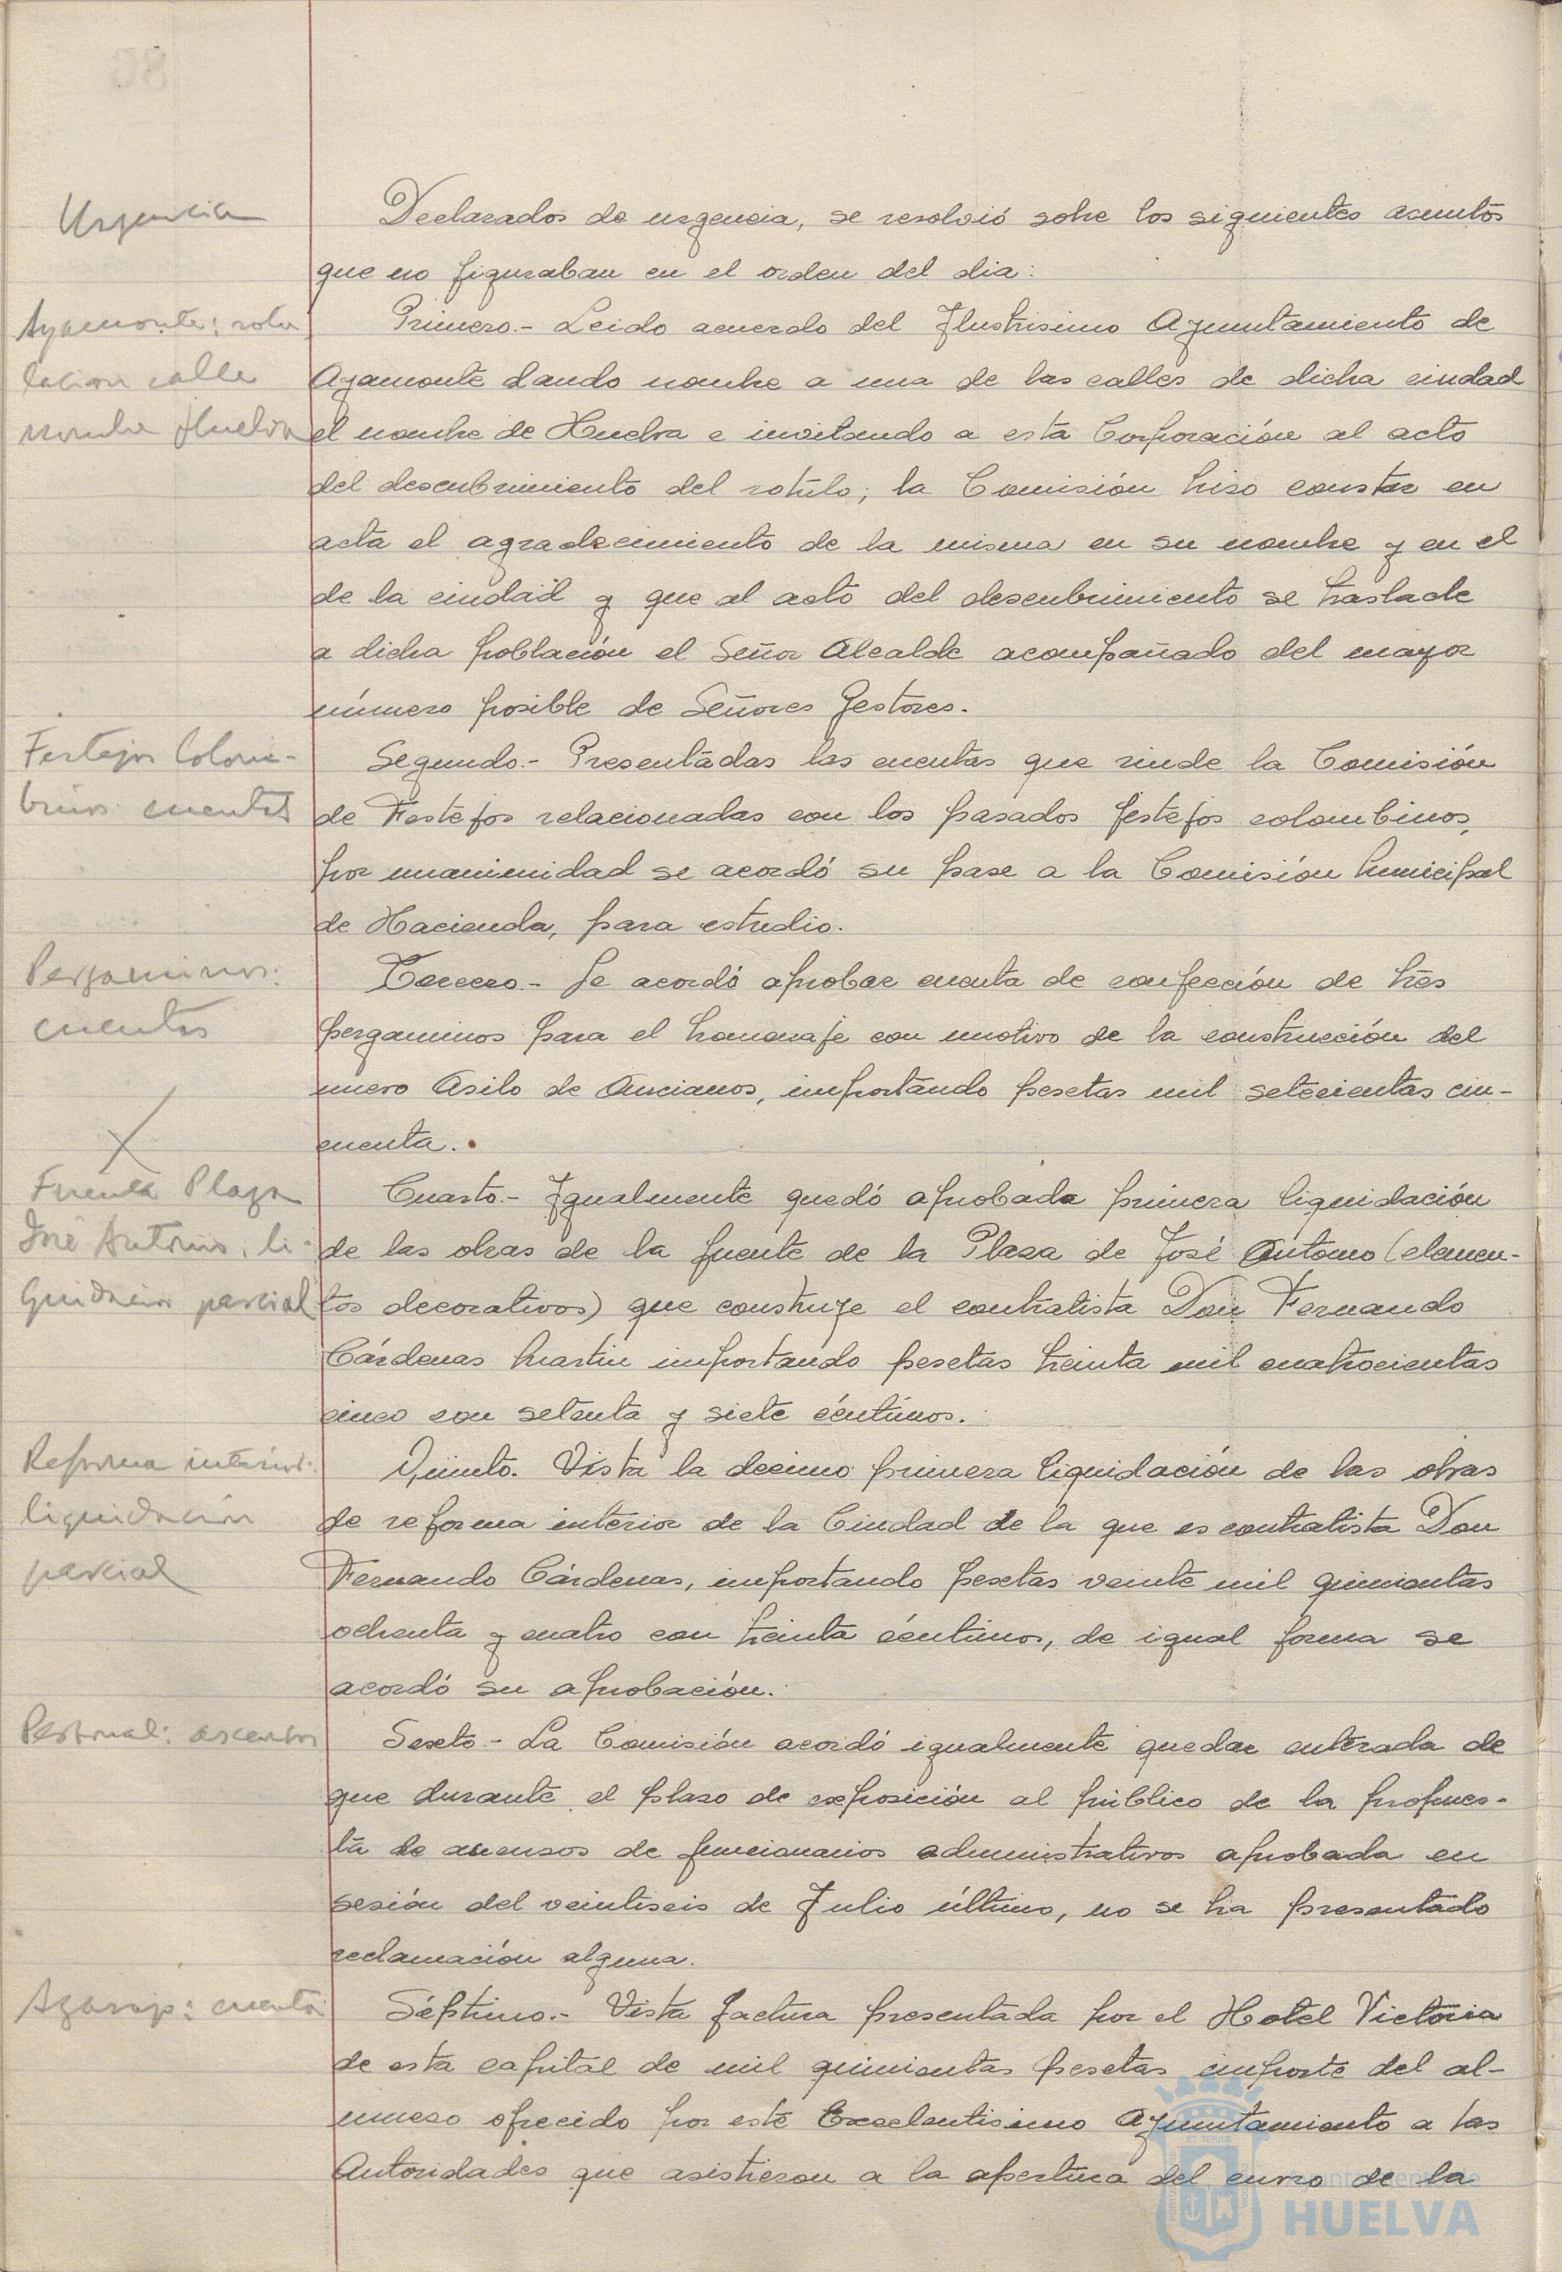 Urgencia
Declarados de urgencia, se resolvió sobre los siguientes asuntos
que no figuraban en el orden del dia:
Ayamonte: rotu
lacion calle
nombre Huelva
Primero.- Leido acuerdo del Ilustrisimo Ayuntamiento de
Ayamonte dando nombre a una de las calles de dicha ciudad
el nombre de Huelva e invitando a esta Corporación al acto
del descubrimiento del rotúlo; la Comisión hiso constar en
acta el agradecimiento de la misma en su nombre y en el
de la ciudad y que al acto del descubrimiento se traslade
a dicha población el Señor Alcalde acompañado del mayor
número posible de Señores Gestores.
Festejos Colom-
binos: cuentas
Segundo.- Presentadas las cuentas que rinde la Comisión
de Festejos relacionadas con los pasados festejos colombinos,
por unanimidad se acordó su pase a la Comisión Municipal
de Hacienda, para estudio.
Pergaminos:
cuentas
Tercero.- Se acordó aprobar cuenta de confección de tres
pergaminos para el homenaje con motivo de la construcción del
nuevo Asilo de Ancianos, importando pesetas mil setecientas cin-
cuenta.
Fuente Plaza
José Antonio, li-
quidacion parcial
Cuarto.- Igualmente quedó aprobada primera liquidación
de las obras de la fuente de la Plaza de José Antonio (elemen-
tos decorativos) que construye el contratista Don Fernando
Cárdenas Martin importando pesetas treinta mil cuatrocientas
cinco con setenta y siete céntimos.
Reforma interior:
liquidacion
parcial
Quinto. Vista la decimo primera liquidación de las obras
de reforma interior de la Ciudad de la que es contratista Don
Fernando Cárdenas, importando pesetas veinte mil quinientas
ochenta y cuatro con treinta céntimos, de igual forma se
acordó su aprobación.
Personal: ascensos
Sexto.- La Comisión acordó igualmente quedar enterada de
que durante el plazo de exposición al público de la propues-
ta de ascensos de funcionarios administrativos aprobada en
sesión del veintiseis de Julio último, no se ha presentado
reclamación alguna.
Agasajo: cuenta
Séptimo.- Vista factura presentada por el Hotel Victoria
de esta capital de mil quinientas pesetas importe del al-
muerzo ofrecido por este Excelentisimo Ayuntamiento a las
Autoridades que asistieron a la apertura del curso de la
Ayuntamiento de
HUELVA